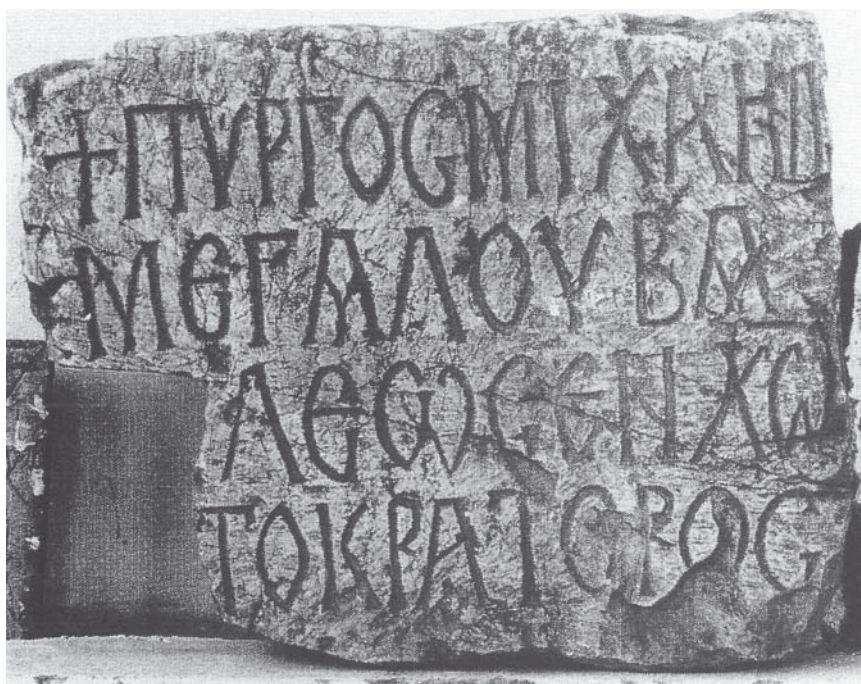 + ΠΥΡΓΟϹ ΜΙΧΑΗΛ
ΜΕΓΑΛΟΥ ΒΑ
ΛΕΩϹ ΕΝ ΧΩ
ΤΟΚΡΑΤΟΡΟϹ